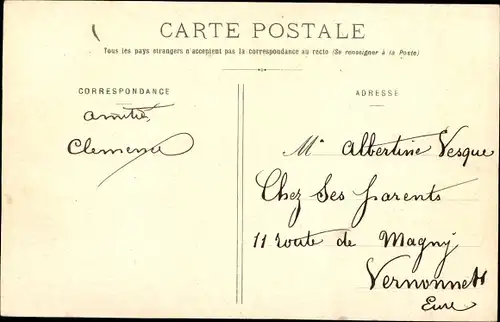 CARTE POSTALE
Tous les pays étrangers n'acceptent pas la correspondance au recto (Se renseigner à la Poste)
CORRESPONDANCE
amitié
Clemence
ADRESSE
Mle Albertine Vesque
Chez Ses parents
11 route de Magny
Vernonnet
Eure